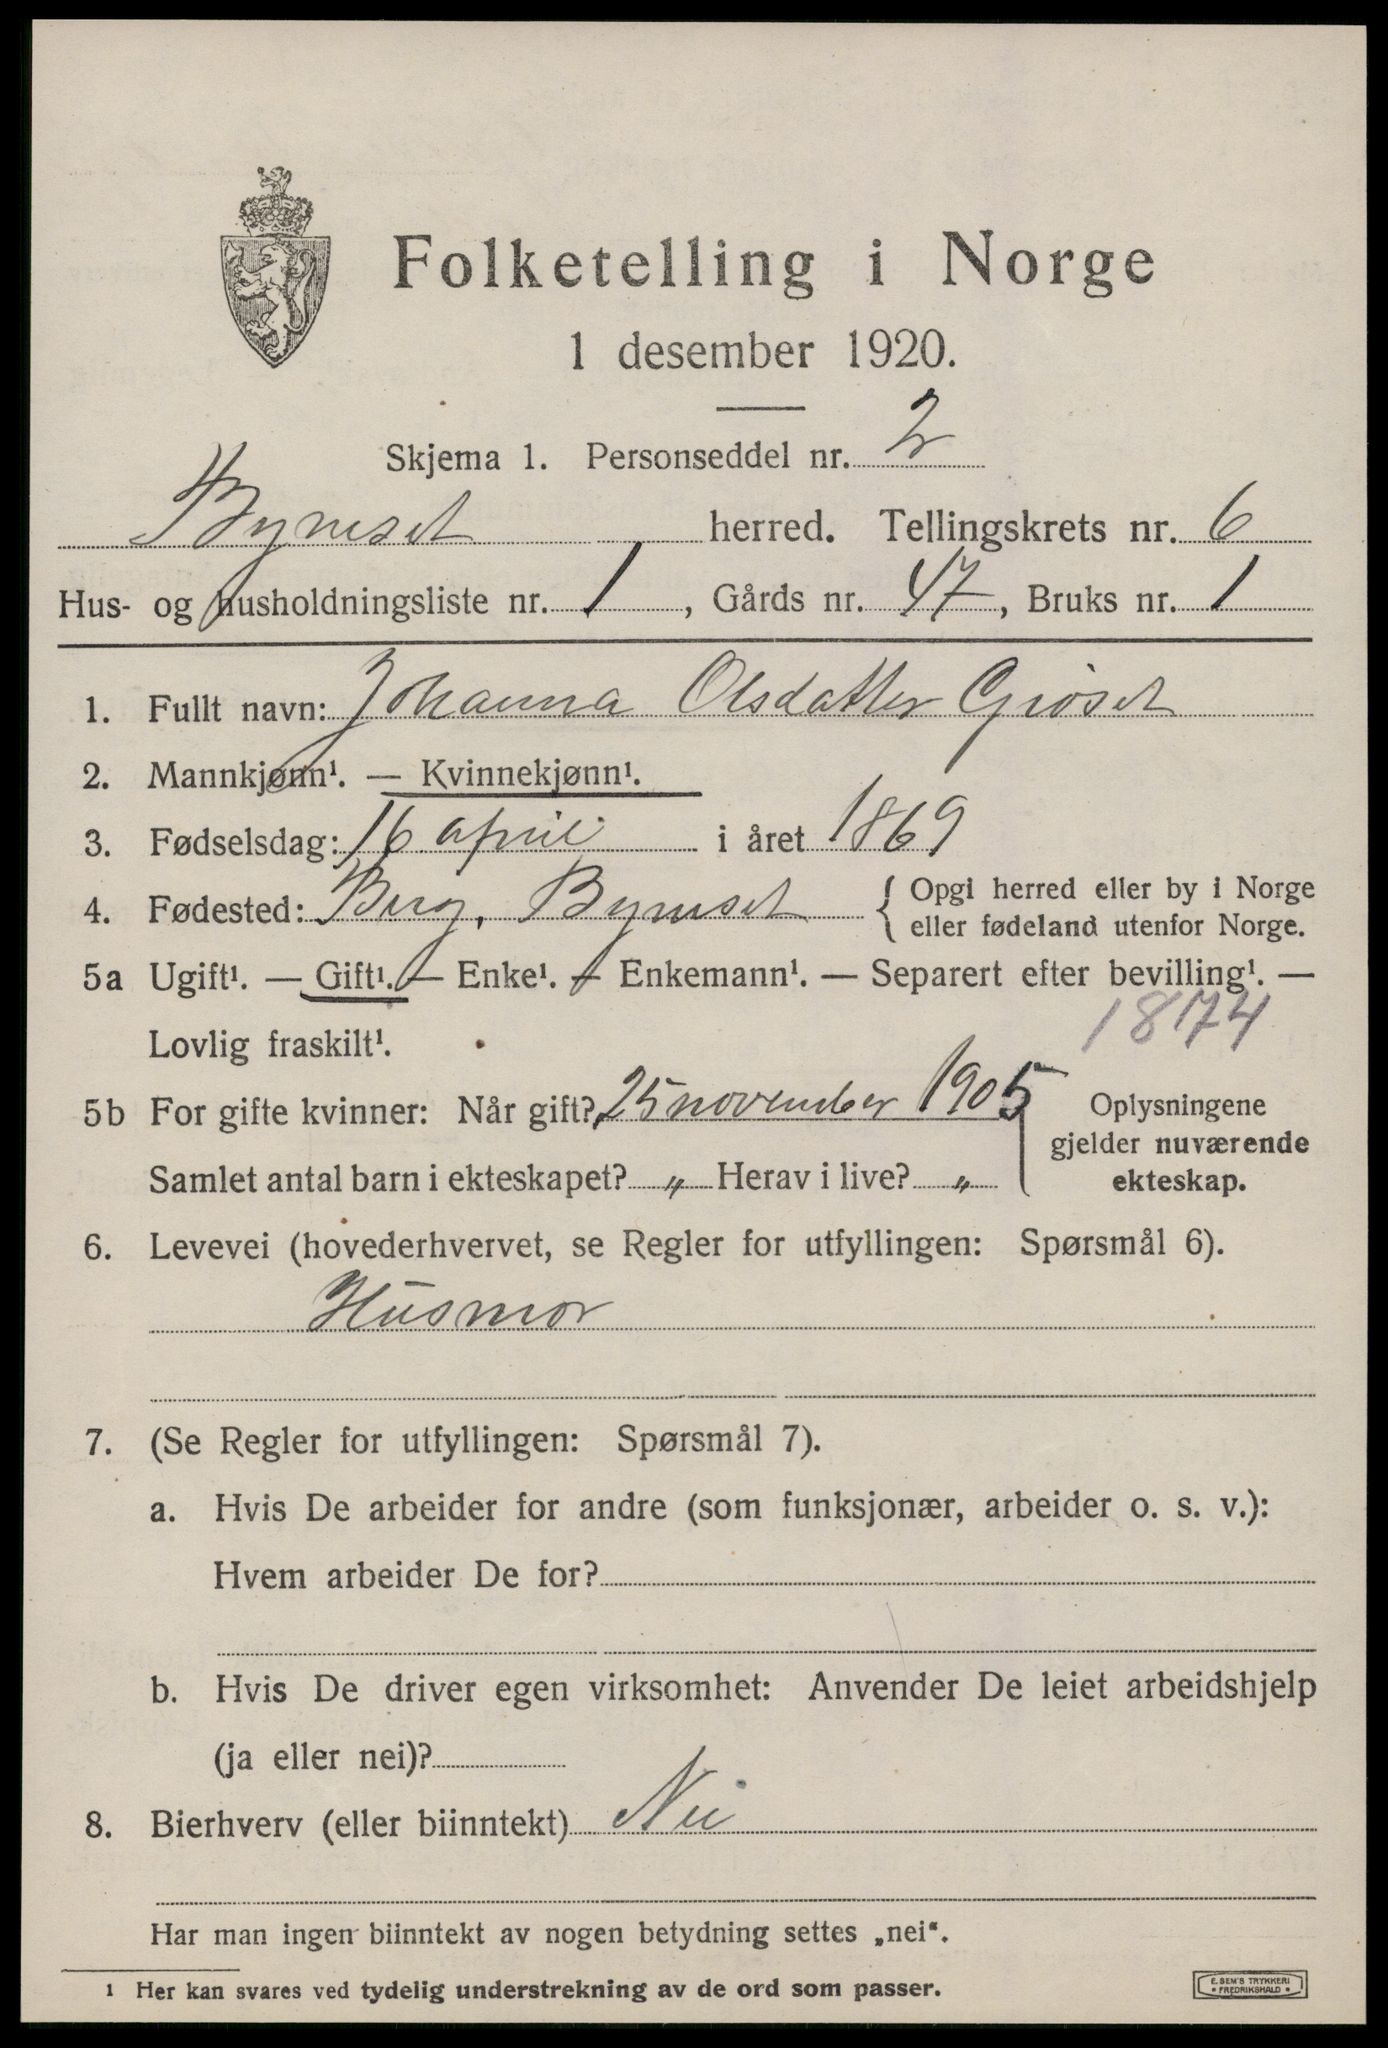 Folketelling i Norge
1 desember 1920.
Skjema 1. Personseddel nr. 2
Byneset herred. Tellingskrets nr. 6
Hus- og husholdningsliste nr. 1, Gårds nr. 47, Bruks nr. 1
1. Fullt navn: Johanna Olsdatter Grøset
2. Mannkjønn¹. — Kvinnekjønn¹.
3. Fødselsdag: 16 april i året 1869
4. Fødested: Berg, Byneset { Opgi herred eller by i Norge
eller fødeland utenfor Norge.
5a Ugift¹. — Gift¹. — Enke¹. — Enkemann¹. — Separert efter bevilling¹. —
Lovlig fraskilt¹. 1874
5b For gifte kvinner: Når gift? 25 november 1905 Oplysningene
gjelder nuværende
Samlet antal barn i ekteskapet? „ Herav i live? „ ekteskap.
6. Levevei (hovederhvervet, se Regler for utfyllingen: Spørsmål 6).
Husmor
7. (Se Regler for utfyllingen: Spørsmål 7).
a. Hvis De arbeider for andre (som funksjonær, arbeider o. s. v.):
Hvem arbeider De for?
b. Hvis De driver egen virksomhet: Anvender De leiet arbeidshjelp
(ja eller nei)?
8. Bierhverv (eller biinntekt) Nei
Har man ingen biinntekt av nogen betydning settes „nei“.
1 Her kan svares ved tydelig understrekning av de ord som passer.
E. SEM'S TRYKKERI
FREDRIKSHALD